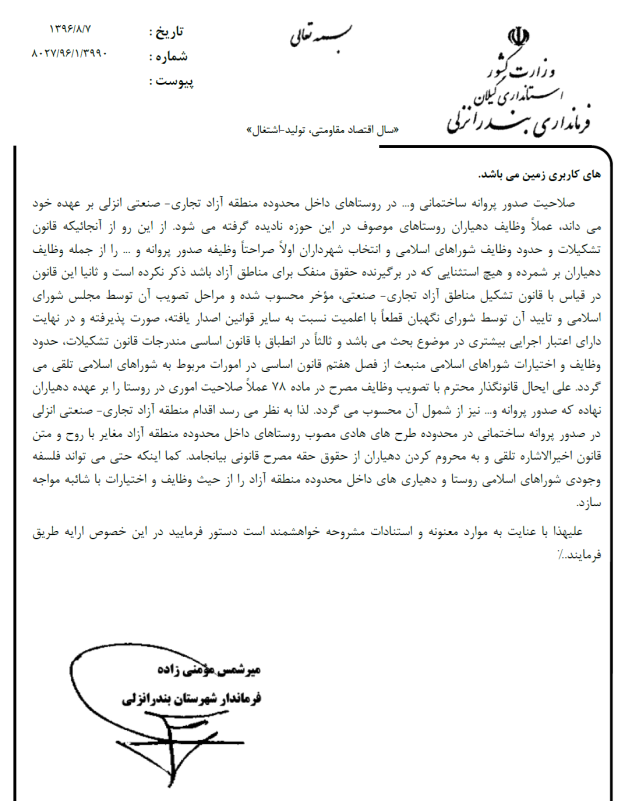 بسمه تعالی
وزارت کشور
استانداری گیلان
فرمانداری بندرانزلی
تاریخ : ۱۳۹۶/۸/۷
شماره : ۸۰۲۷/۹۶/۱/۳۹۹۰
پیوست :
«سال اقتصاد مقاومتی، تولید-اشتغال»
های کاربری زمین می باشد.
صلاحیت صدور پروانه ساختمانی و... در روستاهای داخل محدوده منطقه آزاد تجاری- صنعتی انزلی بر عهده خود
می داند، عملاً وظایف دهیاران روستاهای موصوف در این حوزه نادیده گرفته می شود. از این رو از آنجائیکه قانون
تشکیلات و حدود وظایف شوراهای اسلامی و انتخاب شهرداران اولاً صراحتاً وظیفه صدور پروانه و ... را از جمله وظایف
دهیاران بر شمرده و هیچ استثنایی که در برگیرنده حقوق منفک برای مناطق آزاد باشد ذکر نکرده است و ثانیا این قانون
در قیاس با قانون تشکیل مناطق آزاد تجاری- صنعتی، مؤخر محسوب شده و مراحل تصویب آن توسط مجلس شورای
اسلامی و تایید آن توسط شورای نگهبان قطعاً با اعلمیت نسبت به سایر قوانین اصدار یافته، صورت پذیرفته و در نهایت
دارای اعتبار اجرایی بیشتری در موضوع بحث می باشد و ثالثاً در انطباق با قانون اساسی مندرجات قانون تشکیلات، حدود
وظایف و اختیارات شوراهای اسلامی منبعث از فصل هفتم قانون اساسی در امورات مربوط به شوراهای اسلامی تلقی می
گردد. علی ایحال قانونگذار محترم با تصویب وظایف مصرح در ماده ۷۸ عملاً صلاحیت اموری در روستا را بر عهده دهیاران
نهاده که صدور پروانه و... نیز از شمول آن محسوب می گردد. لذا به نظر می رسد اقدام منطقه آزاد تجاری- صنعتی انزلی
در صدور پروانه ساختمانی در محدوده طرح های هادی مصوب روستاهای داخل محدوده منطقه آزاد مغایر با روح و متن
قانون اخیرالاشاره تلقی و به محروم کردن دهیاران از حقوق حقه مصرح قانونی بیانجامد. کما اینکه حتی می تواند فلسفه
وجودی شوراهای اسلامی روستا و دهیاری های داخل محدوده منطقه آزاد را از حیث وظایف و اختیارات با شائبه مواجه
سازد.
علیهذا با عنایت به موارد معنونه و استنادات مشروحه خواهشمند است دستور فرمایید در این خصوص ارایه طریق
فرمایند../
میرشمس مؤمنی زاده
فرماندار شهرستان بندرانزلی